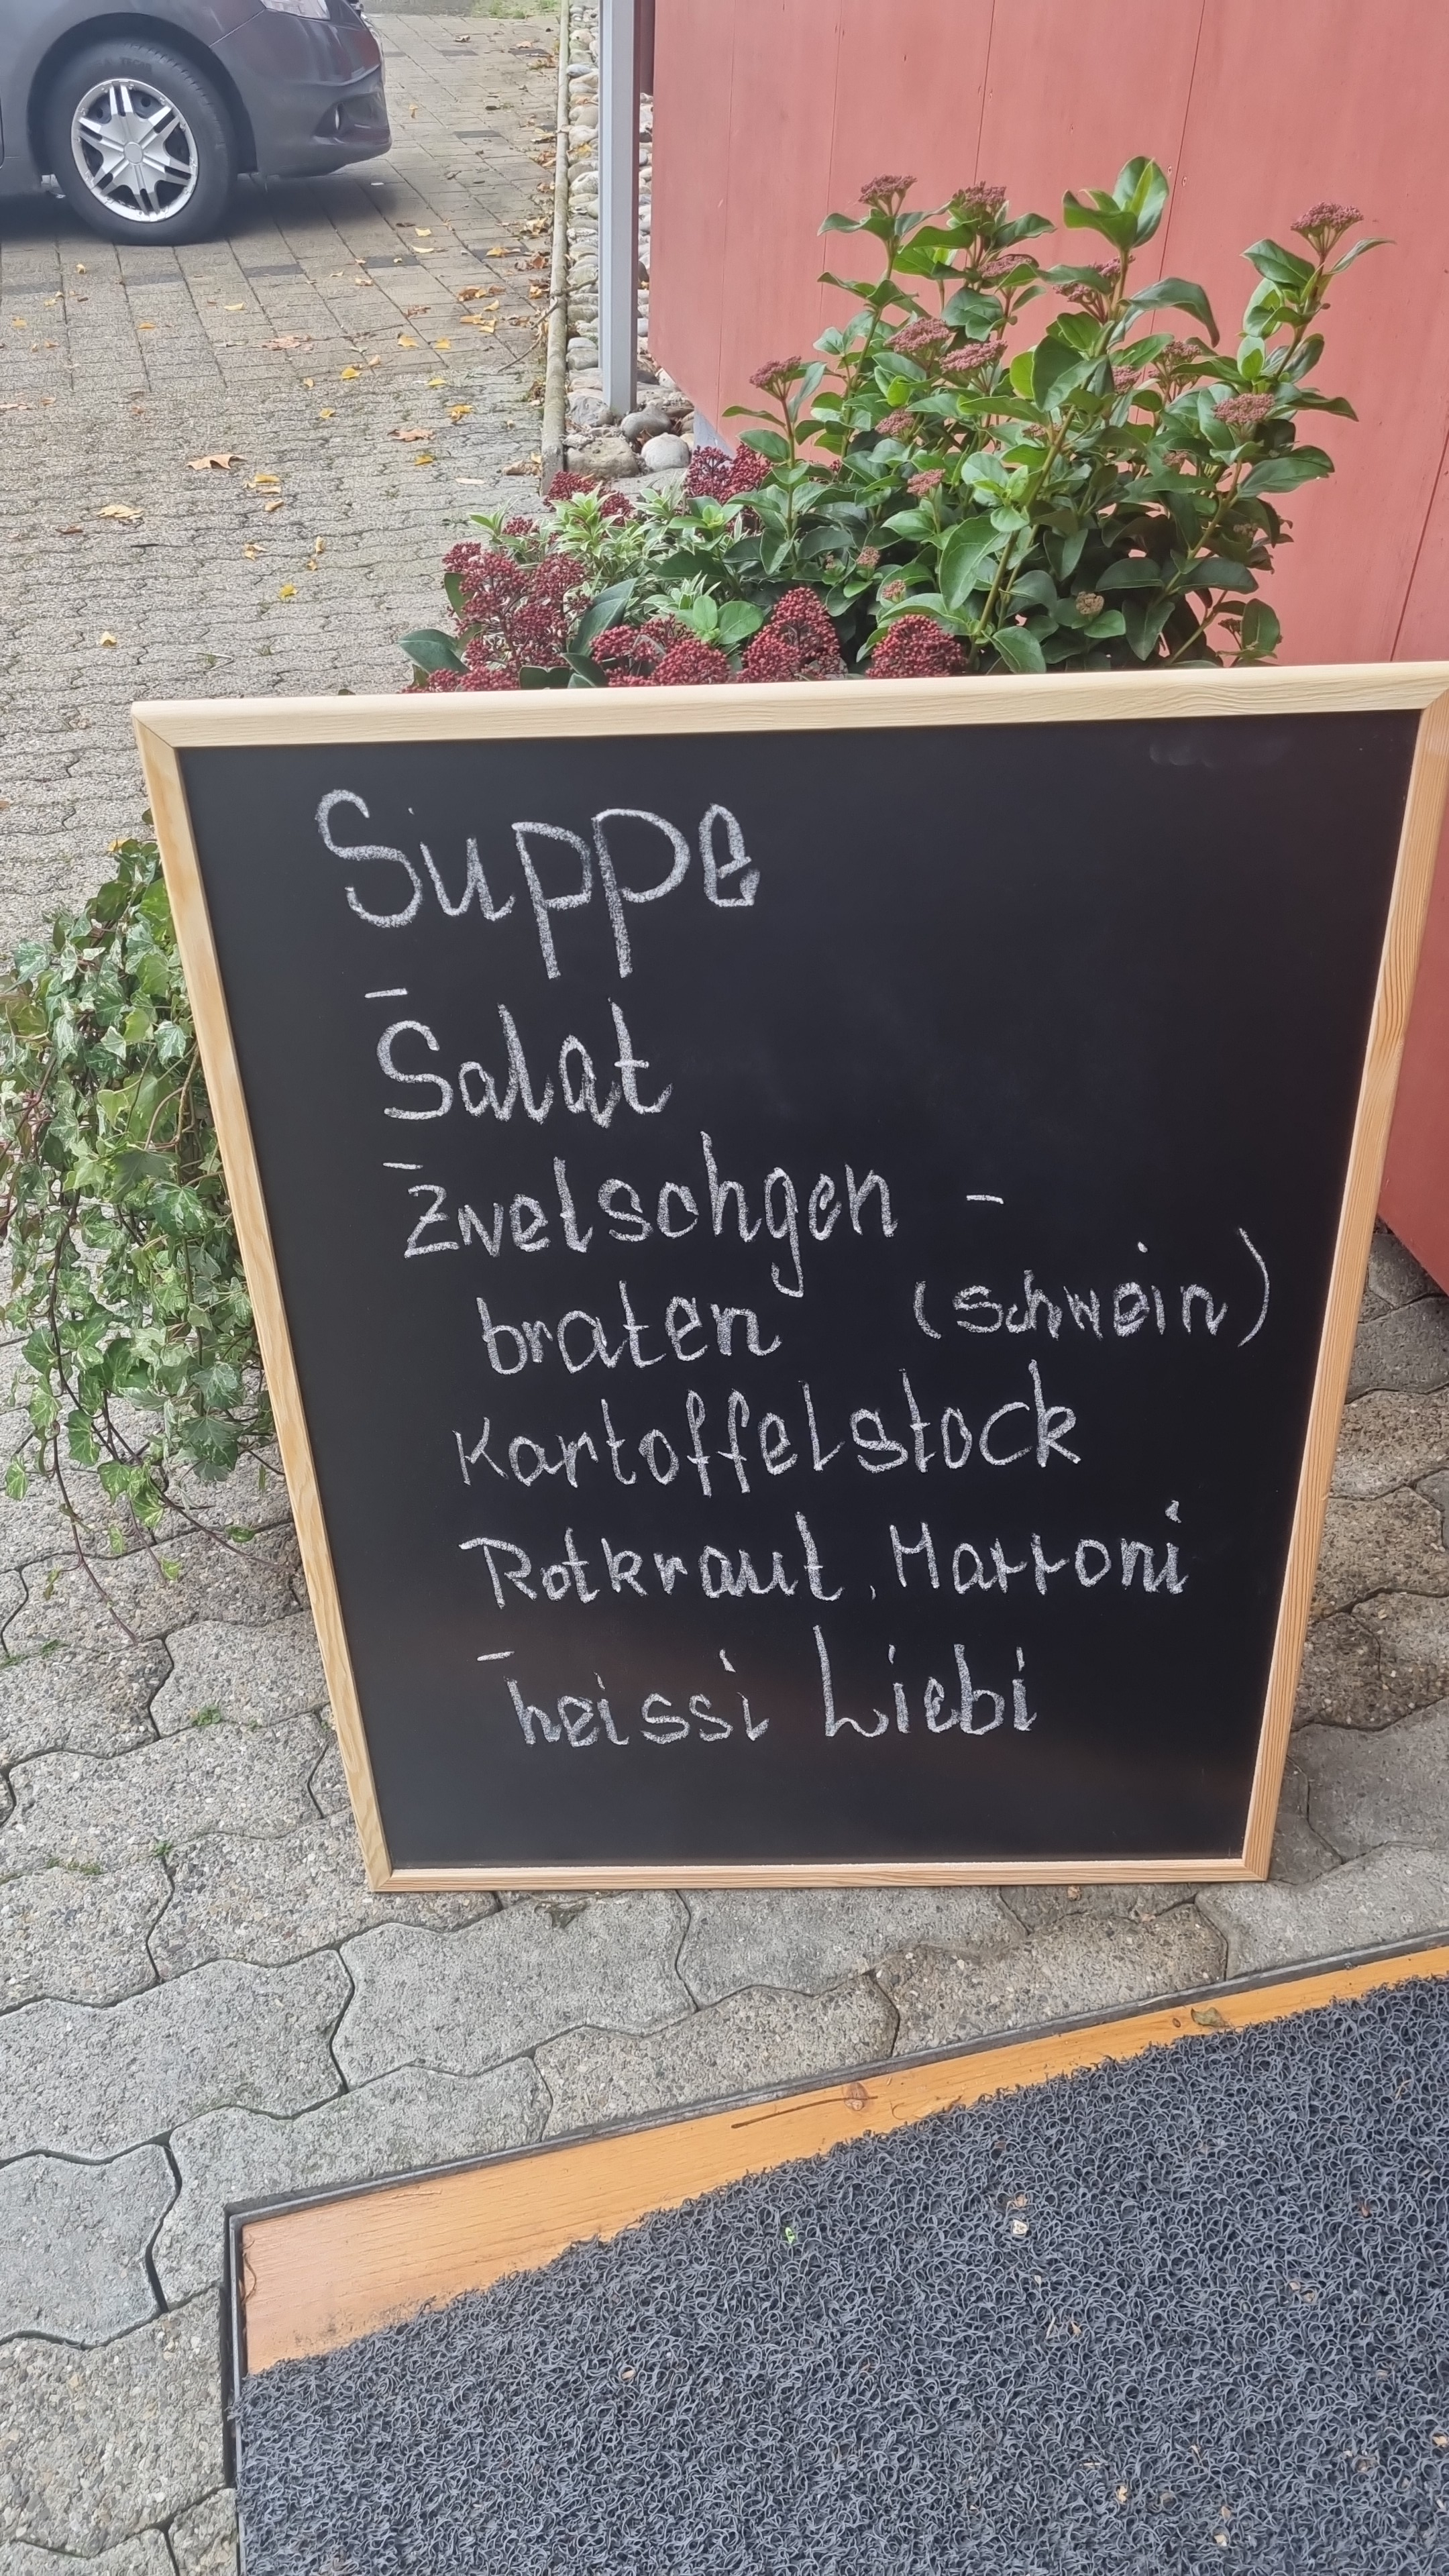 Suppe
–
Salat
–
Zwetschgen -
braten (schwein)
Kartoffelstock
Rotkraut, Marroni
–
heissi Liebi